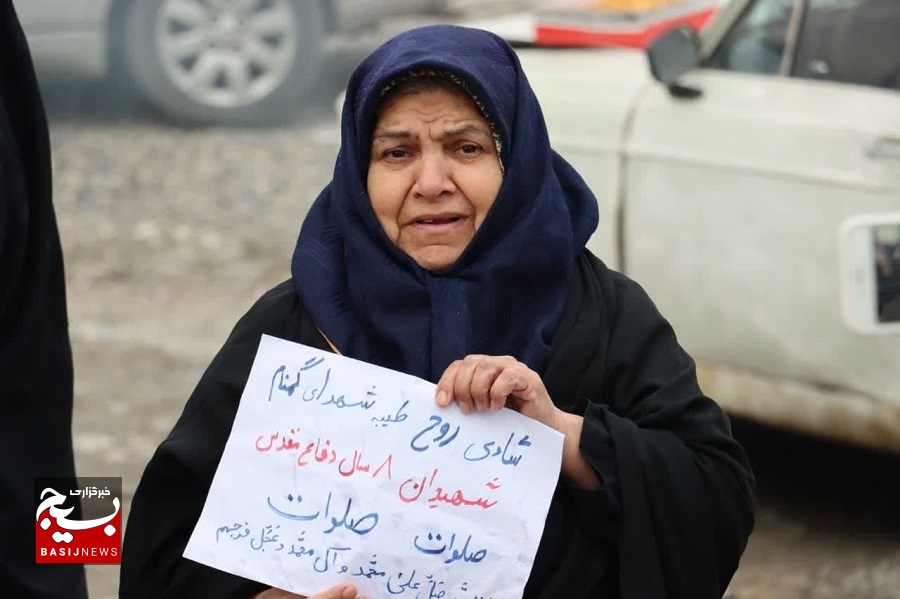 شادی روح طیبه شهدای گمنام
شهیدان ۸ سال دفاع مقدس
صلوات صلوات
صل علی محمد و آل محمد و عجل فرجهم
خبرگزاری
بسیج
BASIJNEWS